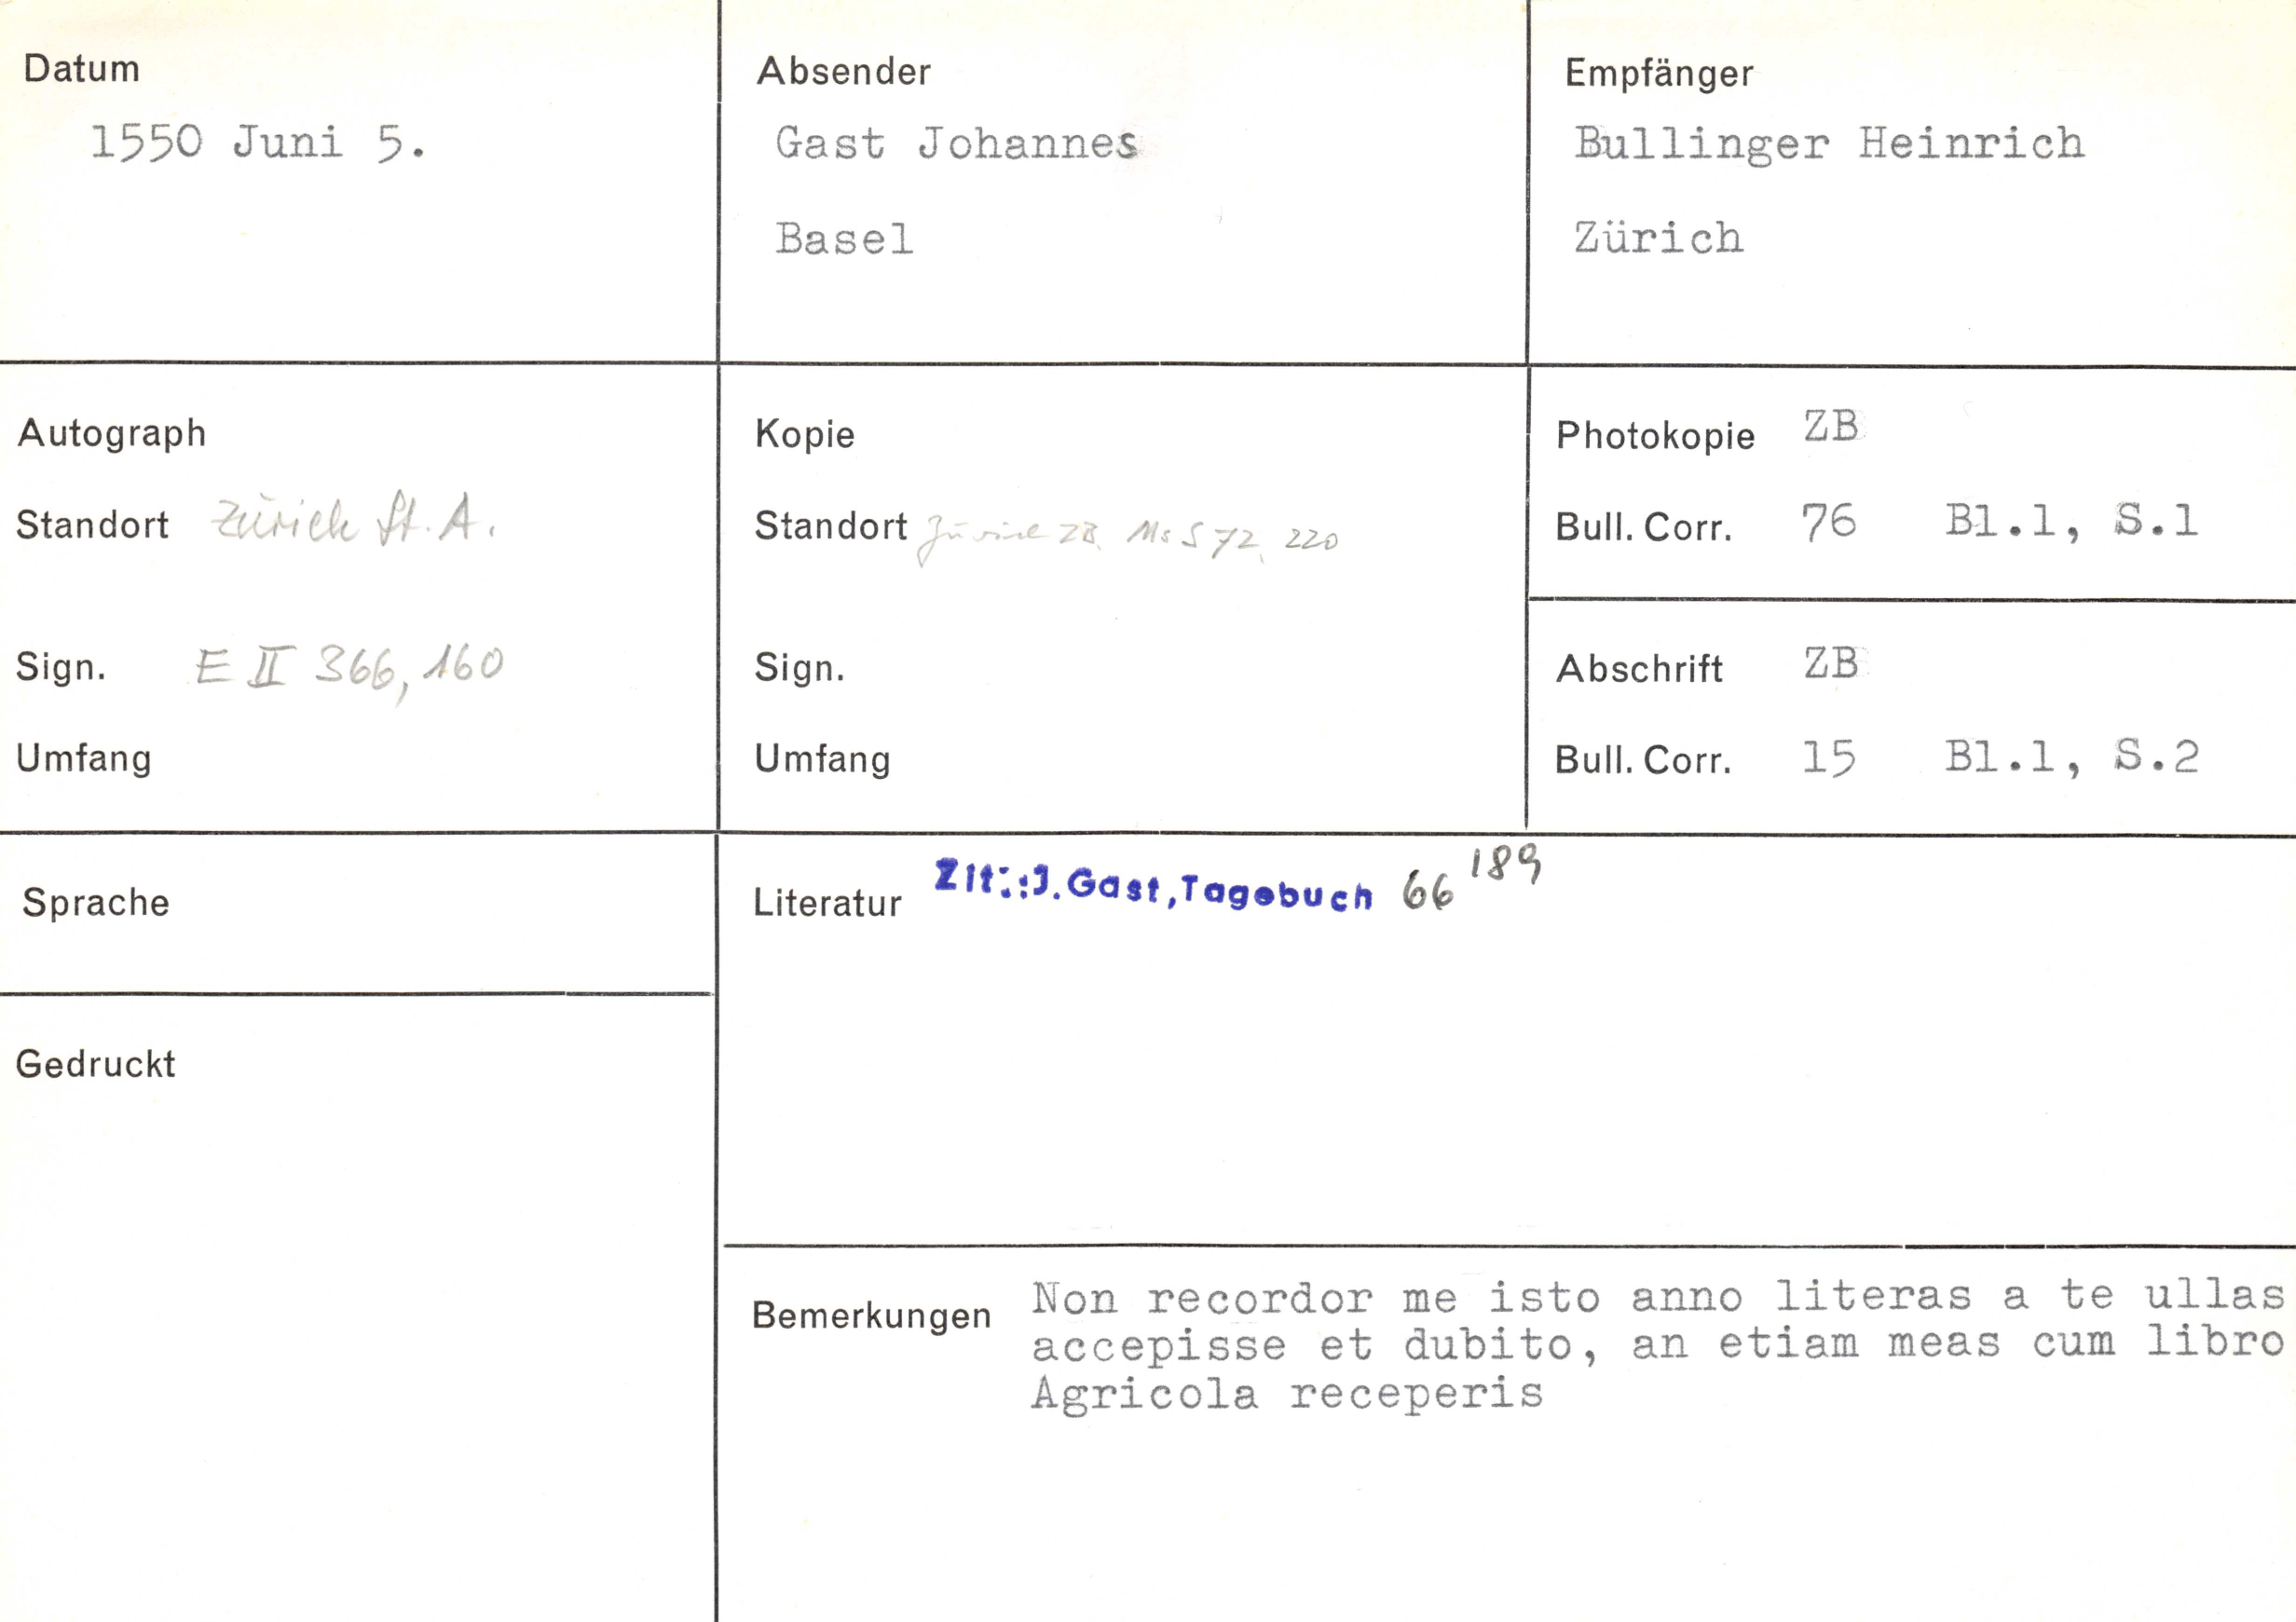 Datum
1550 Juni 5.
Absender
Gast Johannes
Basel
Empfänger
Bullinger Heinrich
Zürich
Autograph
Standort Zürich St. A.
Sign. E II 366, 160
Umfang
Kopie
Standort Zürich ZB, Ms S 72, 220
Sign.
Umfang
Photokopie ZB
Bull. Corr. 76 Bl.1, S.1
Abschrift ZB
Bull. Corr. 15 Bl.1, S.2
Sprache
Gedruckt
Literatur Zit.:J.Gast,Tagebuch 66 189
Bemerkungen Non recordor me isto anno literas a te ullas
accepisse et dubito, an etiam meas cum libro
Agricola receperis